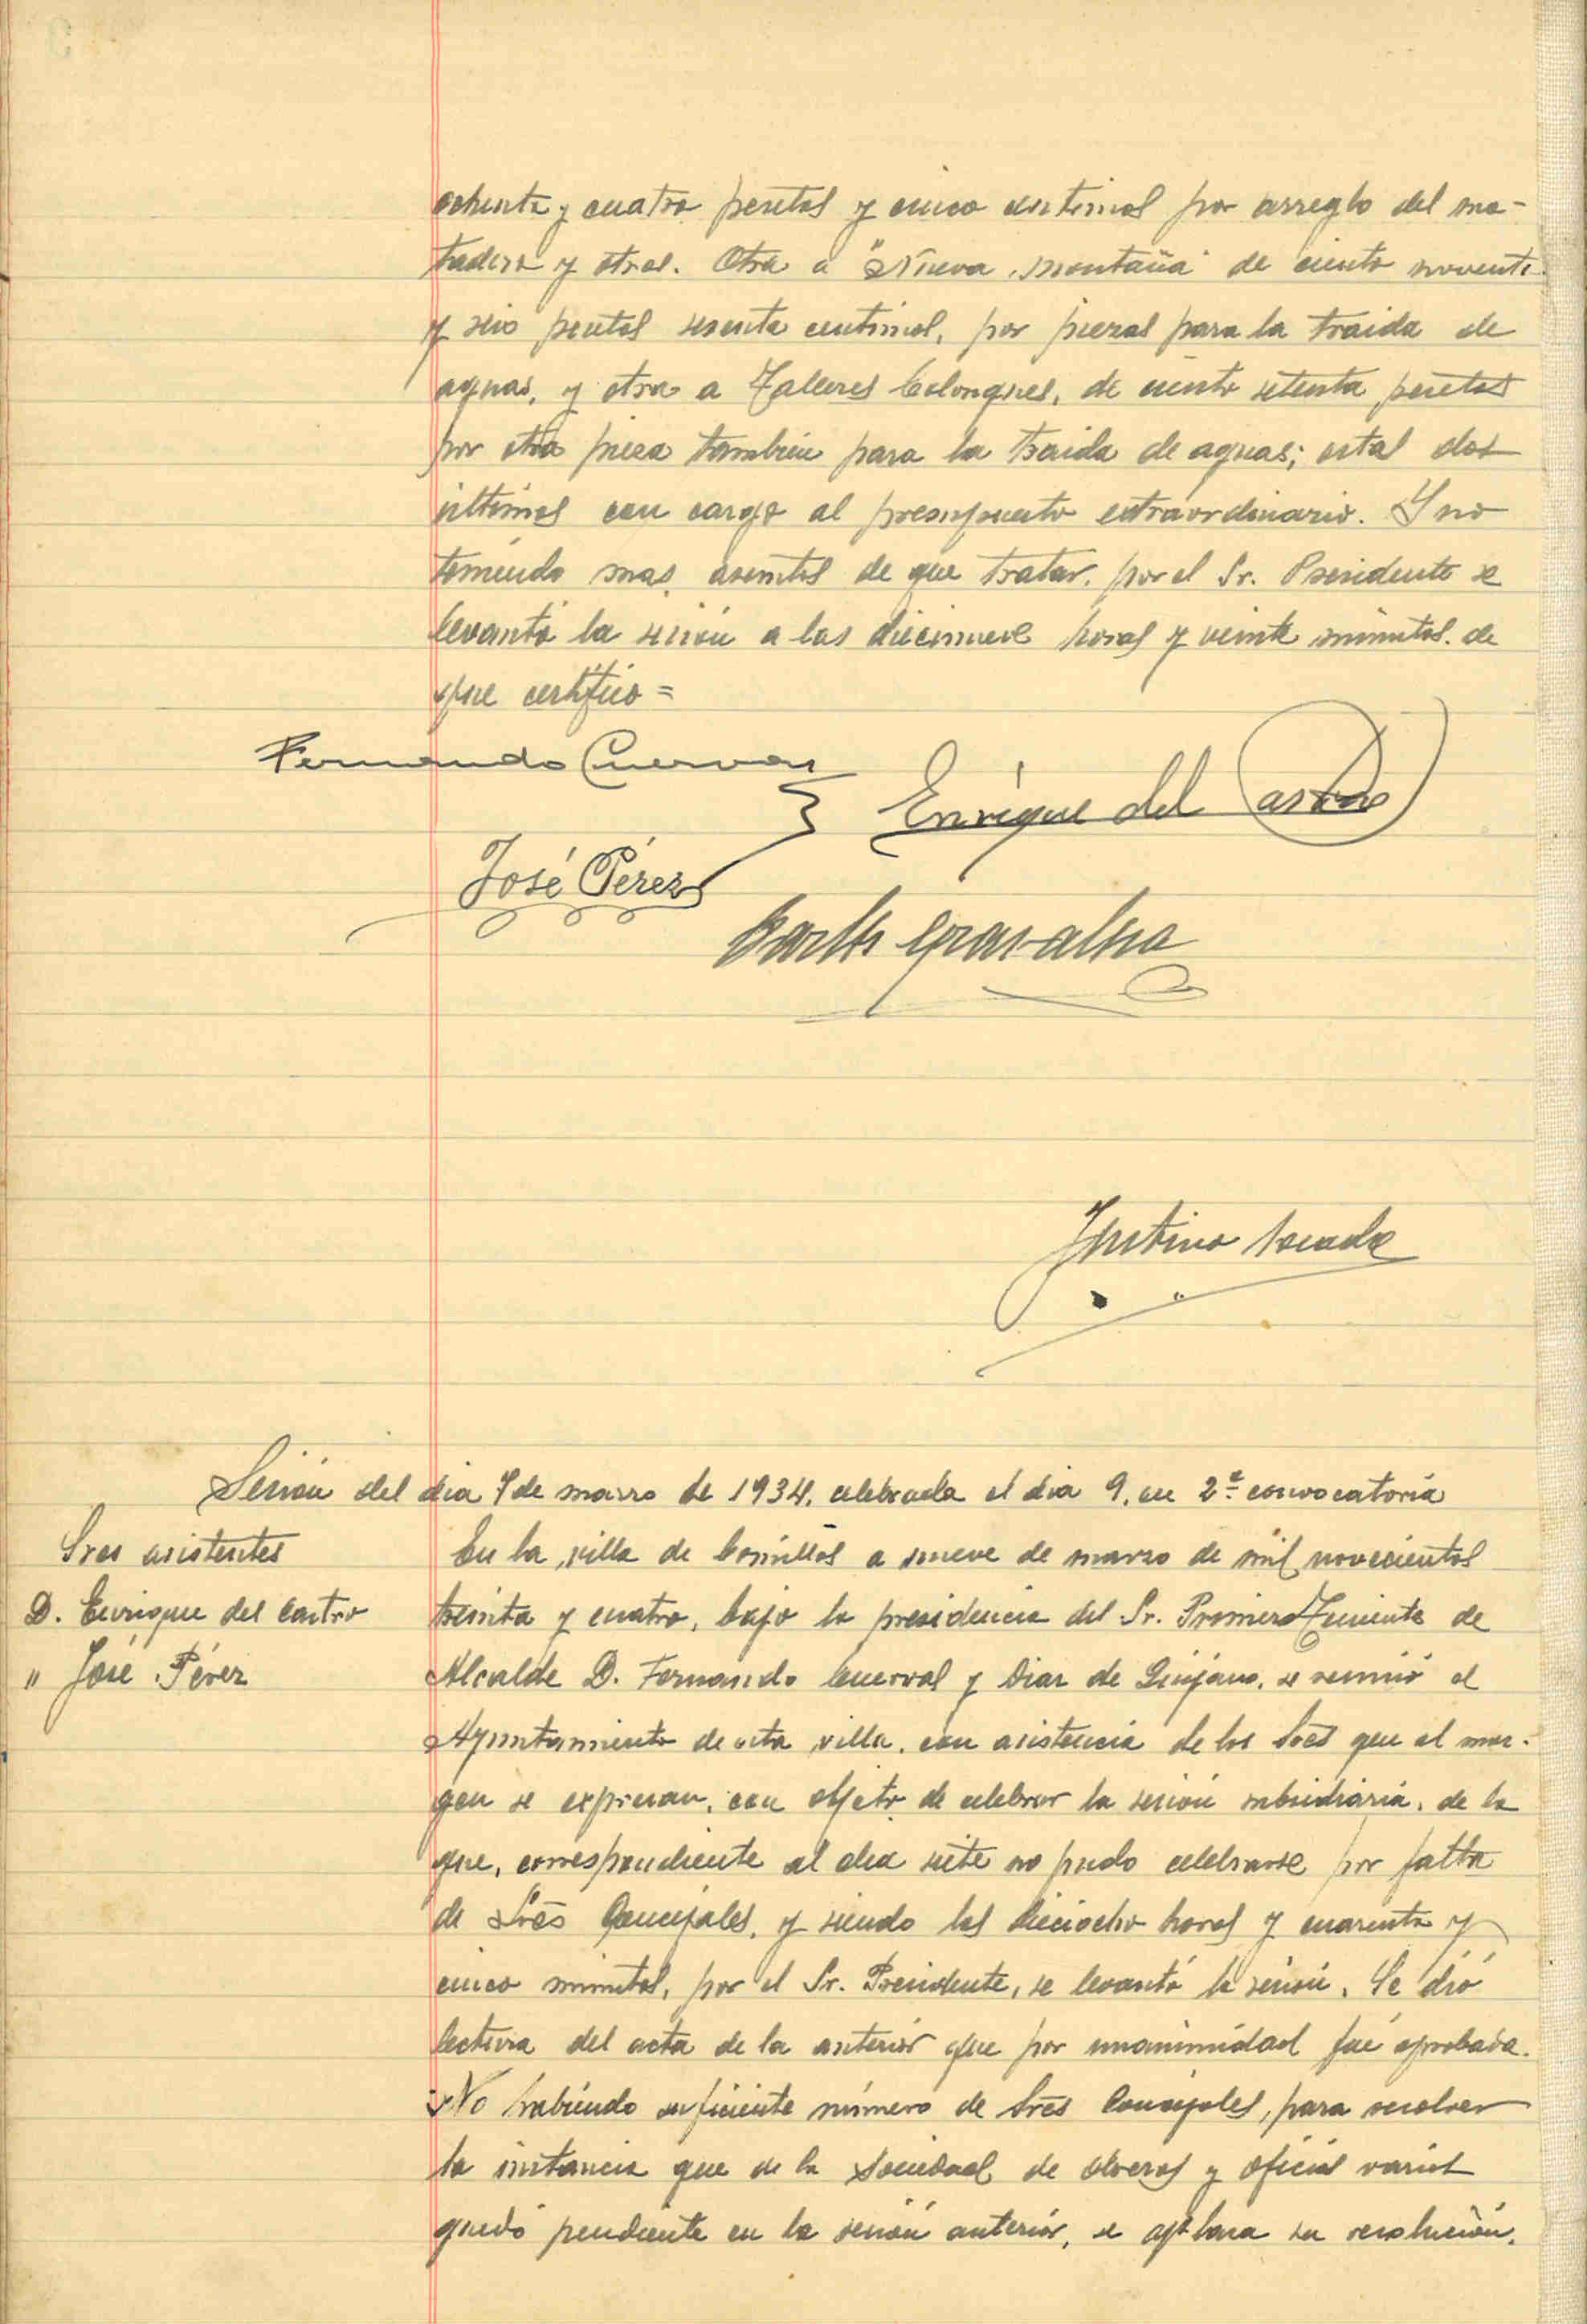 ochenta y cuatro pesetas y cinco centimos por arreglo del ma-
tadero y otros. Otra a "Nueva Montaña" de ciento noventa
y seis pesetas sesenta centimos, por piezas para la traida de
aguas, y otra a Talleres Colongues, de ciento setenta pesetas
por otra pieza tambien para la traida de aguas; estas dos
últimas con cargo al presupuesto extraordinario. Y no
teniendo mas asuntos de que tratar, por el Sr. Presidente se
levantó la sesión a las diecinueve horas y veinte minutos. de
que certifico =
Fernando Cuervas
Enrique del Castro
José Pérez
Justino
Sesión del dia 7 de marzo de 1934, celebrada el dia 9, en 2ª convocatoria
Sres asistentes
D. Enrique del Castro
" José Pérez
En la villa de Comillas a nueve de marzo de mil novecientos
treinta y cuatro, bajo la presidencia del Sr. Primer Teniente de
Alcalde D. Fernando Cuervas y Diaz de Quijano, se reunió el
Ayuntamiento de esta villa, con asistencia de los Sres que al mar-
gen se expresan, con objeto de celebrar la sesión subsidiaria, de la
que, correspondiente al dia siete no pudo celebrarse por falta
de Sres Concejales, y siendo las dieciocho horas y cuarenta y
cinco minutos, por el Sr. Presidente, se levantó la sesión. Se dió
lectura del acta de la anterior que por unanimidad fué aprobada.
No habiendo suficiente número de Sres Concejales, para resolver
la instancia que de la Sociedad de Obreros y Oficios varios
quedó pendiente en la sesión anterior, se aplaza su resolución.